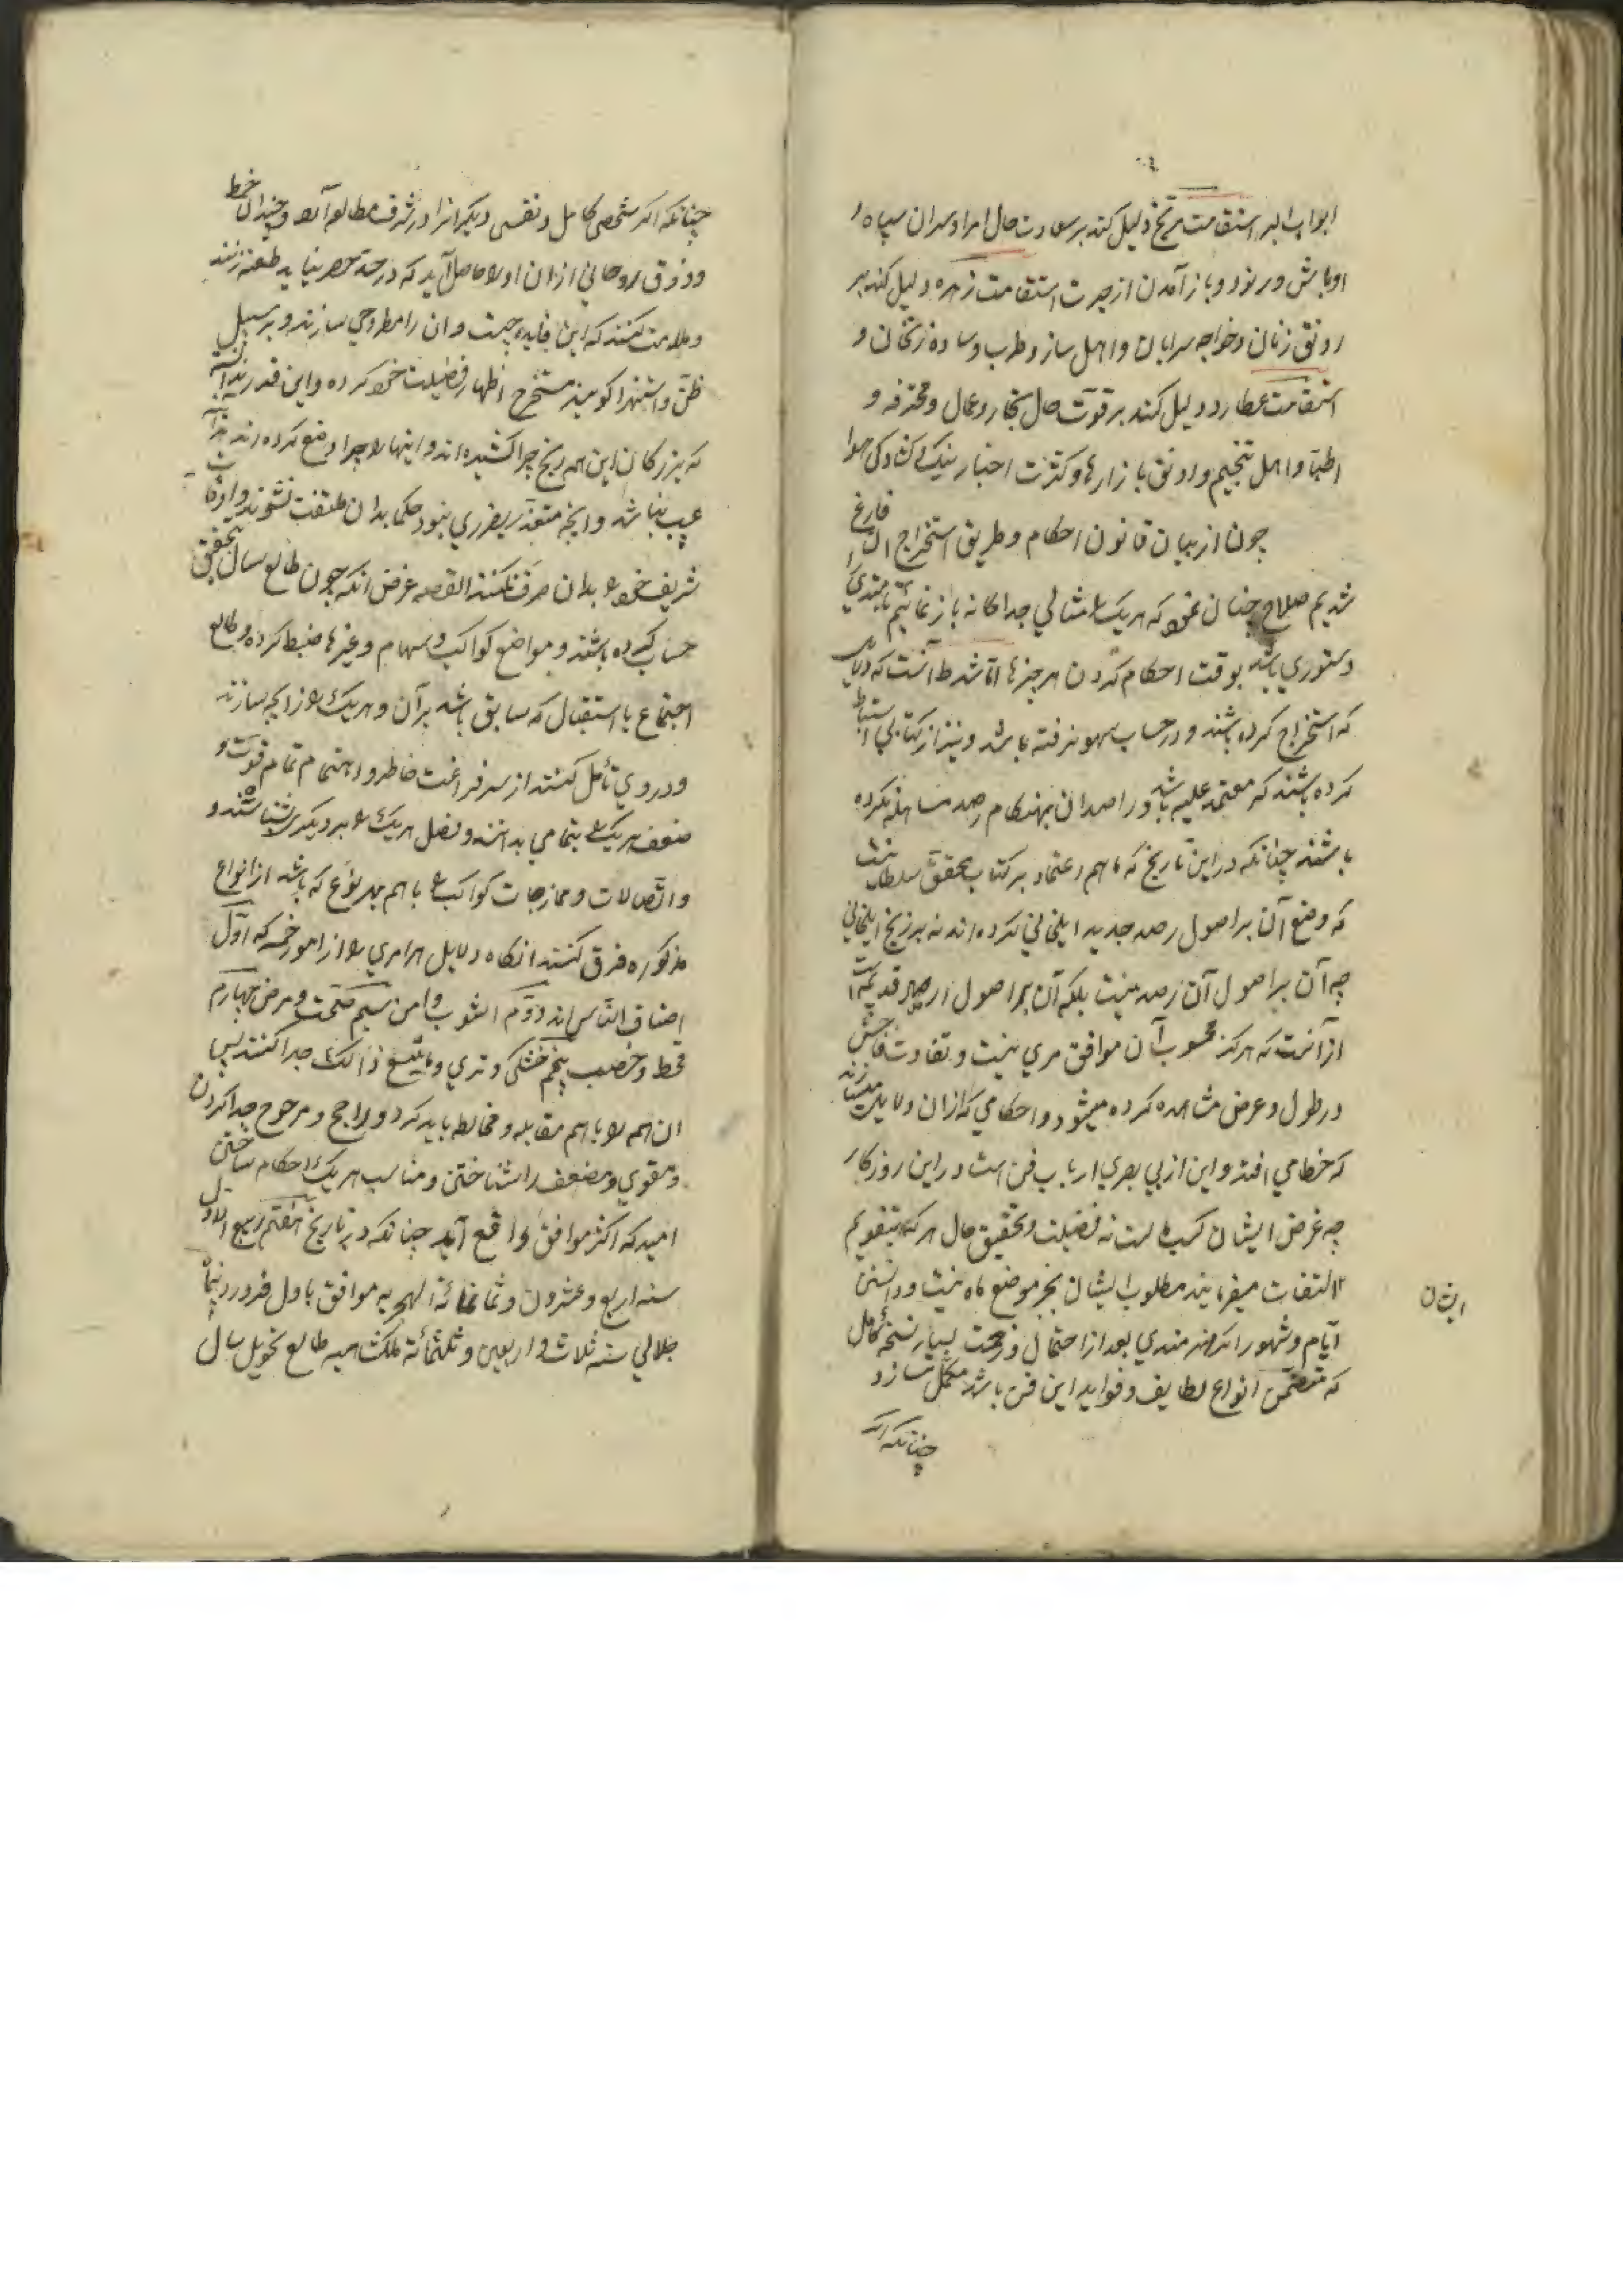 ابواب البر استقامت مریخ دلیل کند بر سعادت حال امرا و سران سپاه و
اوباش و رنود و باز آمدن از حیرت استقامت زهره دلیل کند بر
رونق زنان و خواجه سرایان و اهل ساز و طرب و ساده زنخان و
استقامت عطارد دلیل کند بر قوت حال تجار و عمال و محترفه و
اطبا و اهل تنجیم و رونق بازارها و کثرت اخبار نیک و کشادکی هوا
چون از بیان قانون احکام و طریق استخراج ان فارغ
شدیم صلاح چنان نمود که هریک را مثالی جداکانه باز نمائیم تا مبتدی را
دستوری باشد بوقت احکام کردن هر چیزها اما شرط آنست که دلایلی
که استخراج کرده باشند و در حساب سهو نرفته باشد و نیز از کتابی استنباط
کرده باشند که معتمد علیه باشد و راصدان بهنکام رصد مساهله نکرده
باشند چنانکه در این تاریخ که ما هم اعتماد بر کتاب محقق سلطانیست
که وضع آن بر اصول رصد جدید ایلخانی کرده اند نه بر زیج ایلخانی
چه آن بر اصول آن رصد نیست بلکه آن بر اصول ارصاد قدیمه است
از آنست که هرکز محسوب آن موافق مری نیست و تفاوت فاحش
در طول و عرض مشاهده کرده میشود و احکامی که ازان دلایل میسازند
که خطا می افتد و این از بی بصری ارباب فن است در این روزکار
چه غرض ایشان کسب است نه فضیلت و تحقیق حال هر که بتقویم
التفات میفرمایند مطلوب ایشان بجز موضع ماه نیست و دانستن
ایام و شهور اکر هنرمندی بعد از احتمال زحمت بسیار نسخهٔ کامل
که متضمن انواع لطایف و فواید این فن باشد مکمل سازد
چنانکه اکر
ایشان
چنانکه اکر شخصی کامل و نفسی دیکر انرا در شرف مطالعه آرد و چندان حظ
و ذوق روحانی ازان او را حاصل آید که در حد حصر نیاید طعنه زنند
و ملامت کنند که این فایده چیست و ان را مطروحی سازند و بر سبیل
ظن و استهزا کویند مستخرج اظهار فضیلت خود کرده و این قدر ندانند
که بزرکان این همه رنج چرا کشیده اند و اینها را چرا وضع کرده اند
عیب نباشد و انچه متعذر بضرری نبود حکما بدان ملتفت نشوند و اوقات
شریف خود را بدان صرف نکنند القصه غرض انکه چون طالع سال بتحقیق
حساب کرده باشند و مواضع کواکب و سهام و غیرها ضبط کرده و طالع
اجتماع یا استقبال که سابق باشد بر آن و هر یک را زایجه سازند
و در وی تأمل کنند از سر فراغت خاطر و اهتمام تمام قوت و
ضعف هر یک را بتمامی بدانند و فضل هر یک را بر دیکری بشناسند و
و اتصالات و ممازجات کواکب را با هم بهر نوع که باشد از انواع
مذکوره فرق کنند انکاه دلایل هر امری را از امور خمسه که اول
اصناف الناس اند دوم اشوب و امن سیم صحت و مرض چهارم
قحط و خصب پنجم خشکی و تری و ما یتبع ذالک جدا کنند پس
ان همه را با هم مقابله و مخالطه باید کرد و راجح و مرجوح جدا کردن
و مقوی و مضعف را شناختن و مناسب هر یک احکام ساختن
امید که اکثر موافق واقع آید چنانکه در تاریخ هفتم ربیع الاول
سنه اربع و عشرون و ثمانمائة الهجریه موافق باول فروردینماه
جلالی سنه ثلاث و اربعین و ثلثمائة ملکشاهیه طالع تحویل سال